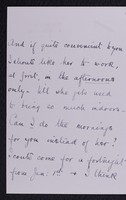 And if quite convenient to you
I should like her to work,
at first, in the afternoons
only. till she gets used
to being so much indoors.
Can I do the mornings
for you instead of her?
I could come for a fortnight
from Jan. 1st I think